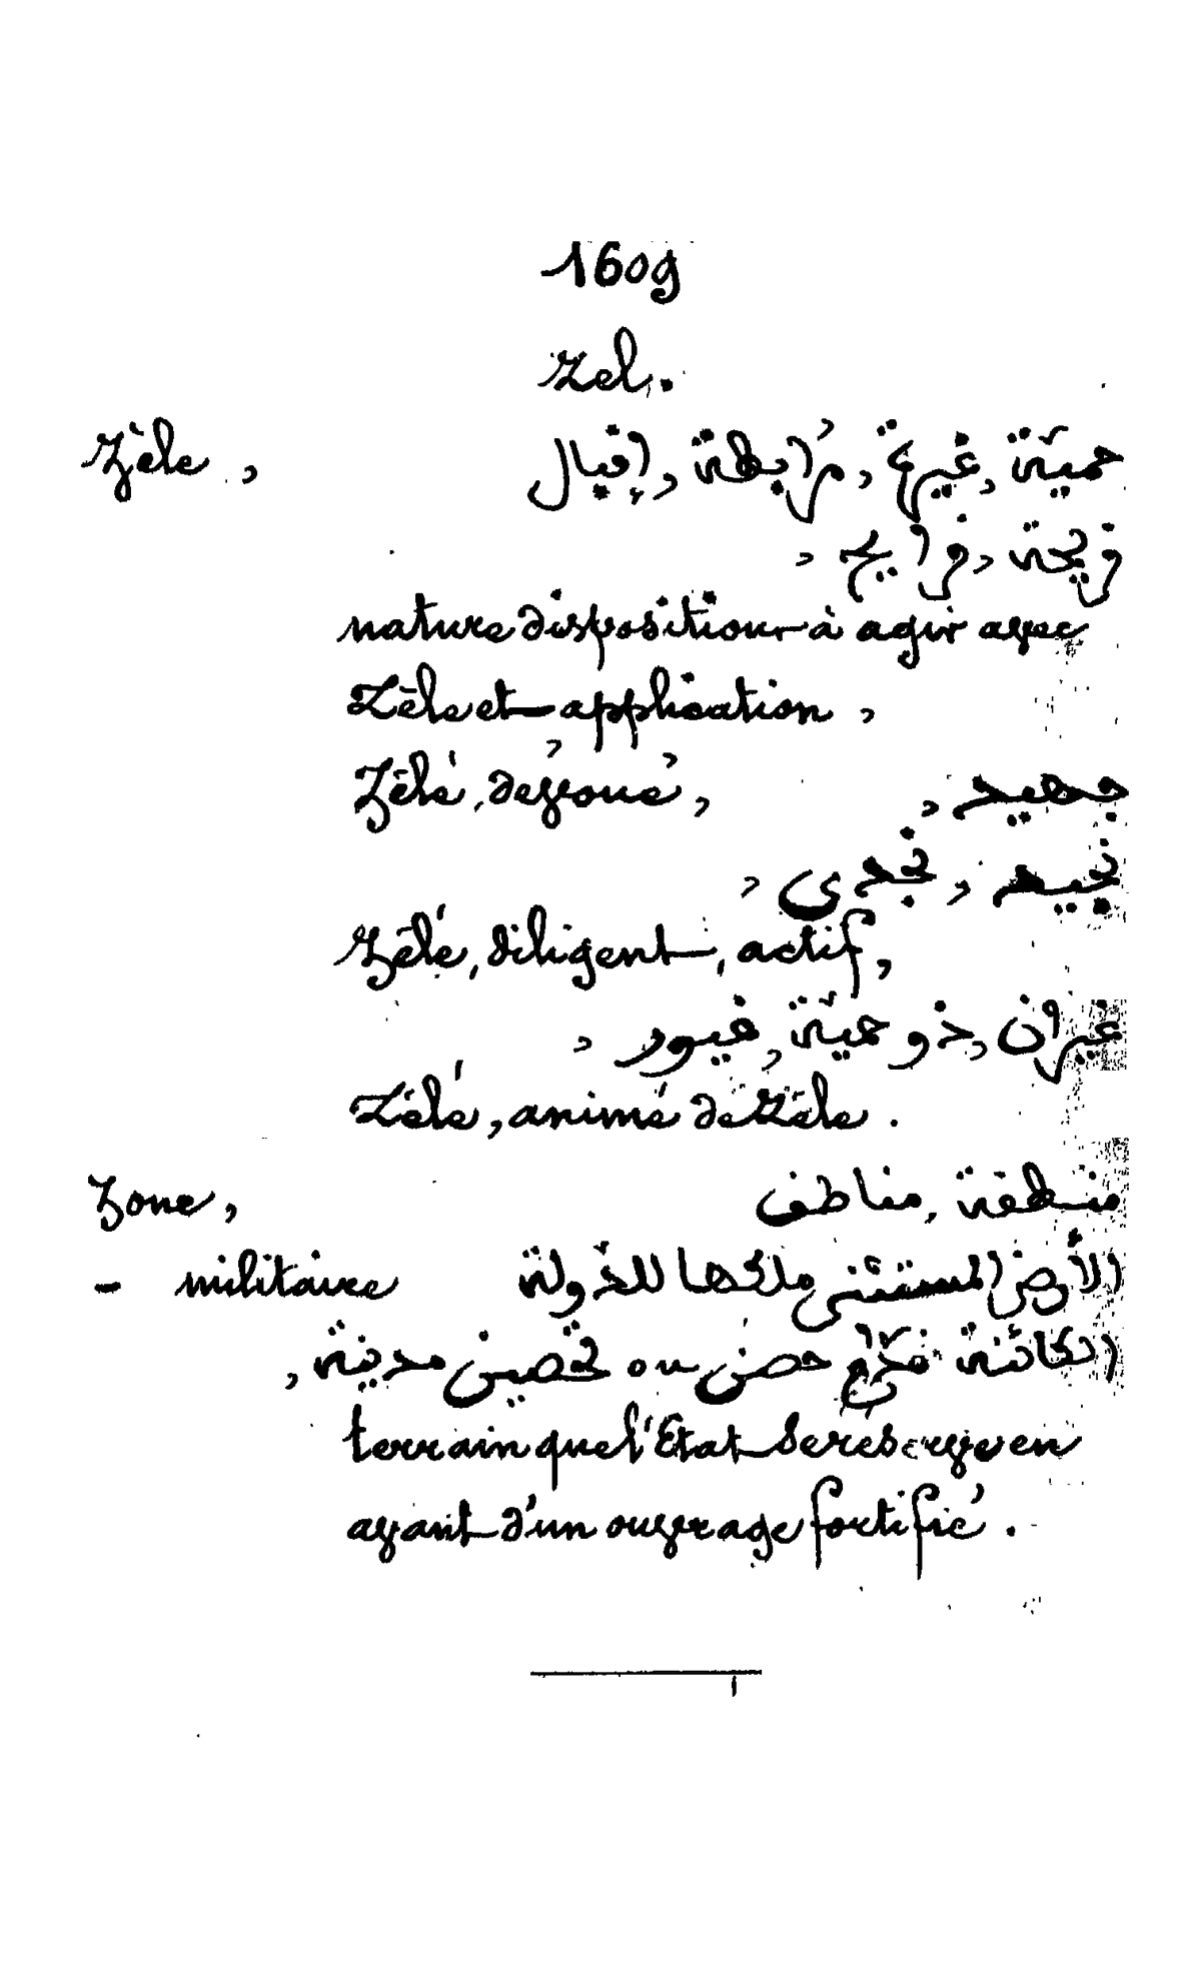 1609
Zel.
Zèle, حميّة, غيرة, مُرابطة, إقبال
قريحة, قرايح,
nature disposition à agir avec
Zèle et application,
Zélé, dévoué, جهيد,
نجيد, نجدى,
Zélé, diligent, actif,
غيران, ذو حميّة, غيور,
Zélé, animé de Zèle.
Zone, منطقة, مناطق
- militaire الأرض المستثنى ملكها للدّولة
الكائنة قدّام حصن ou تحصين مدينة,
terrain que l'Etat se réserve en
avant d'un ouvrage fortifié.